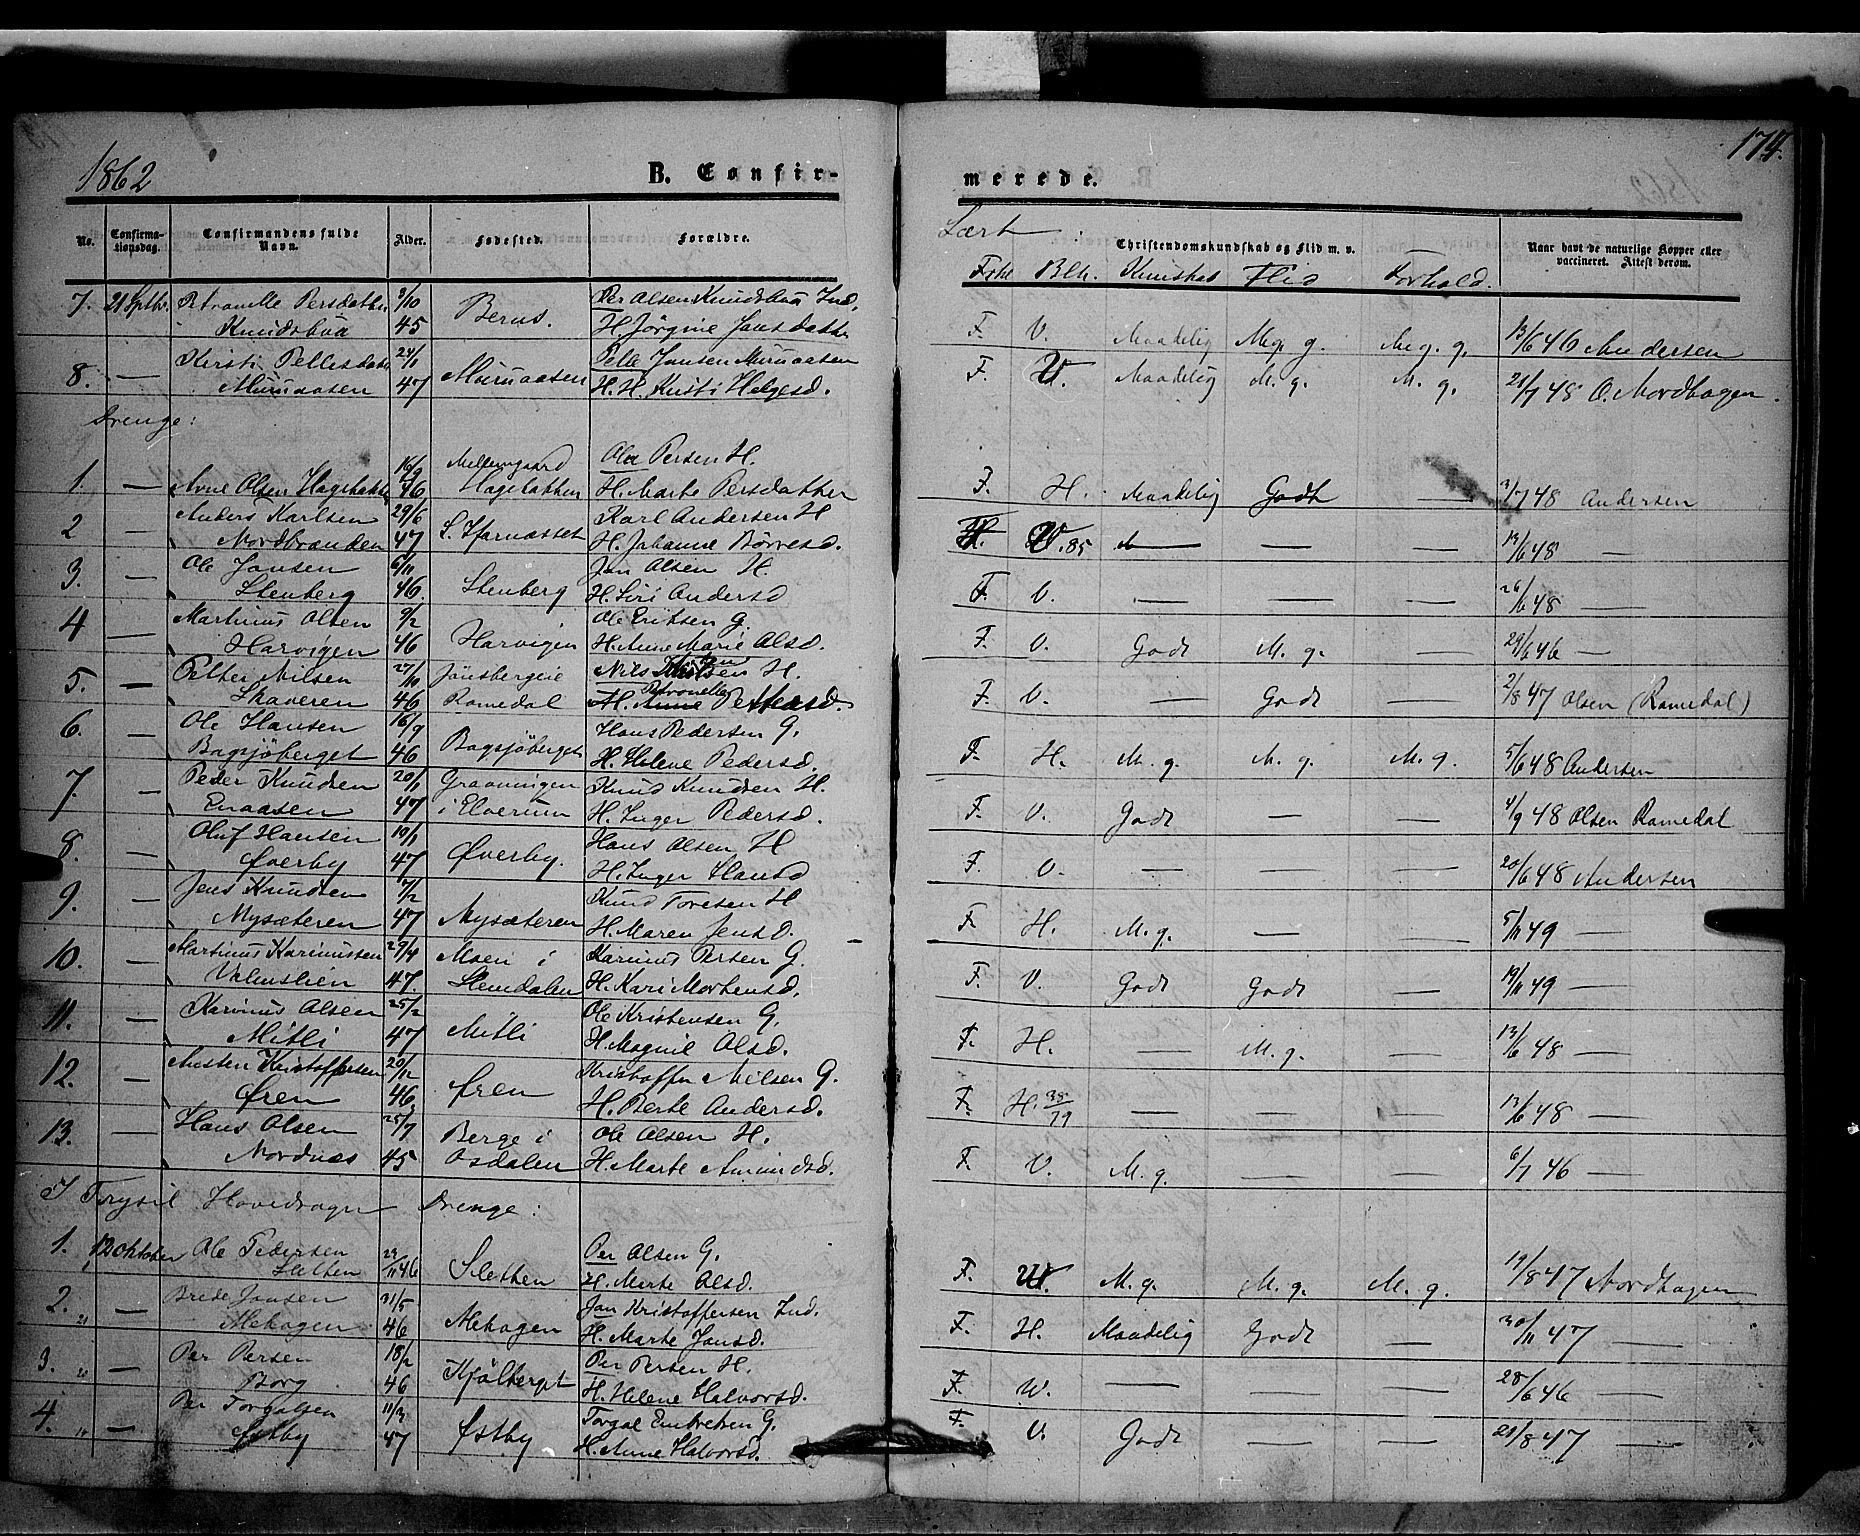 1862 B. Confir- merede. 174.
No. Confirma-tionsdag. Confirmandens fulde Navn. Alder. Fødested. Forældre. Læst Christendomskundskab og Flid m. v. Naar havt de naturlige Kopper eller vaccineret. Attest derom.
Kundskab Flid Forhold.
7. 21 Septbr. Petronelle Persdatter 3/10 Berus. Per Olsen Knudsbua Ind.
Knudsbua 45 H. Jørgine Jansdatter F. V. Maadelig M. g. M. g. 13/6 46 Andersen
8. — Kirsti Pellesdatter 24/1 Muruaasen Pelle Jansen Muruaasen
Muruaasen 47 H. H. Kirsti Helgesd. F. V. Maadelig M. g. M. g. 21/7 48 O. Nordhagen.
Drenge:
1. — Arne Olsen Hagebakken 16/9 Mellemgaard Ola Persen H.
46 Hagebakken H. Marte Persdatter F. H. Maadelig Godt — 2/7 48 Andersen
2 — Anders Karlsen 29/6 Karl Andersen H
Nordbranden 47 H. Johanne Børresd. V. 85 — — — 19/6 48 —
3. — Ole Jansen 6/11 Stenberg Jan Olsen H.
Stenberg 46. H. Siri Andersd F. V. — — — 26/6 48 —
4 — Martinus Olsen 9/2 Harvigen Ole Eriksen G.
Harvigen 46 H. Anne Marie Olsd. F. V. Godt M. g. — 29/6 46 —
5. — Petter Nilsen 27/10 Nils H.
Skaveren 46 Romedal H. Petronelle Pettersd. F. V. — Godt — 2/8 47 Olsen (Romedal)
6. — Ole Hansen 16/9 Bagsjøberget Hans Pedersen G.
Bagsjøberget 46 H. Helene Pedersd. F. H. M. g. M. g. M. g. 5/6 48 Andersen
7. — Peder Knudsen 20/1 Knud Knudsen H
Enaasen 47 i Elverum H. Inger Pedersd. F. V. Godt — — 4/9 48 Olsen Romedal
8. — Oluf Hansen 10/1 Øverby. Hans Olsen H
Øverby 47 H. Inger Hansd F. V. — — — 20/6 48 Andersen
9. — Jens Knudsen 7/2 Mysæteren Knud Toresen H
Mysæteren 47 H. Maren Jensd. F. H. M. g. — — 5/11 49 —
10. — Martinus Karinussen 29/4 Moen i Karinus Persen G.
47. Slemdalen H. Kari Mortensd. F. V. Godt Godt — 19/11 49 —
11. — Karinus Olsen 25/2 Mitli Ole Kristensen G.
Mitli 47 H. Magnil Olsd. F. H. — M. g. — 13/6 48 —
12. — Austen Kristoffersen 20/12 Øren Kristoffer Nilsen G.
Øren 46 H. Berte Andersd. F. H. — — — 13/6 48 —
13. — Hans Olsen 25/7 Berge i Ole Olsen H.
Nordnæs 45 Osdalen H. Marte Amundsd. F. V. M. g. — — 6/7 46 —
I Trysil Hovedsogn Drenge:
1. 12 oktober Ole Pedersen Sletten Per Olsen G.
Sletten 46 H. Marte Olsd. F. M. g. M. g. M. g. 19/8 47 Nordhagen
2. — Brede Jansen 31/5 Mehagen Jan Kristoffersen Ind.
Mehagen 46 H. Marte Jansd. F. H. Maadelig Godt — 30/11 47 —
3. — Per Persen 18/2 Kjølberget Per Persen H.
Borg 46 H. Helene Halvorsd. F. — — — 28/6 46 —
4. — Per Torgalsen 11/3 Østby Torgal Embretsen G.
Østby 47 H. Anne Halvorsd. F. V. Godt — — 21/8 47 —